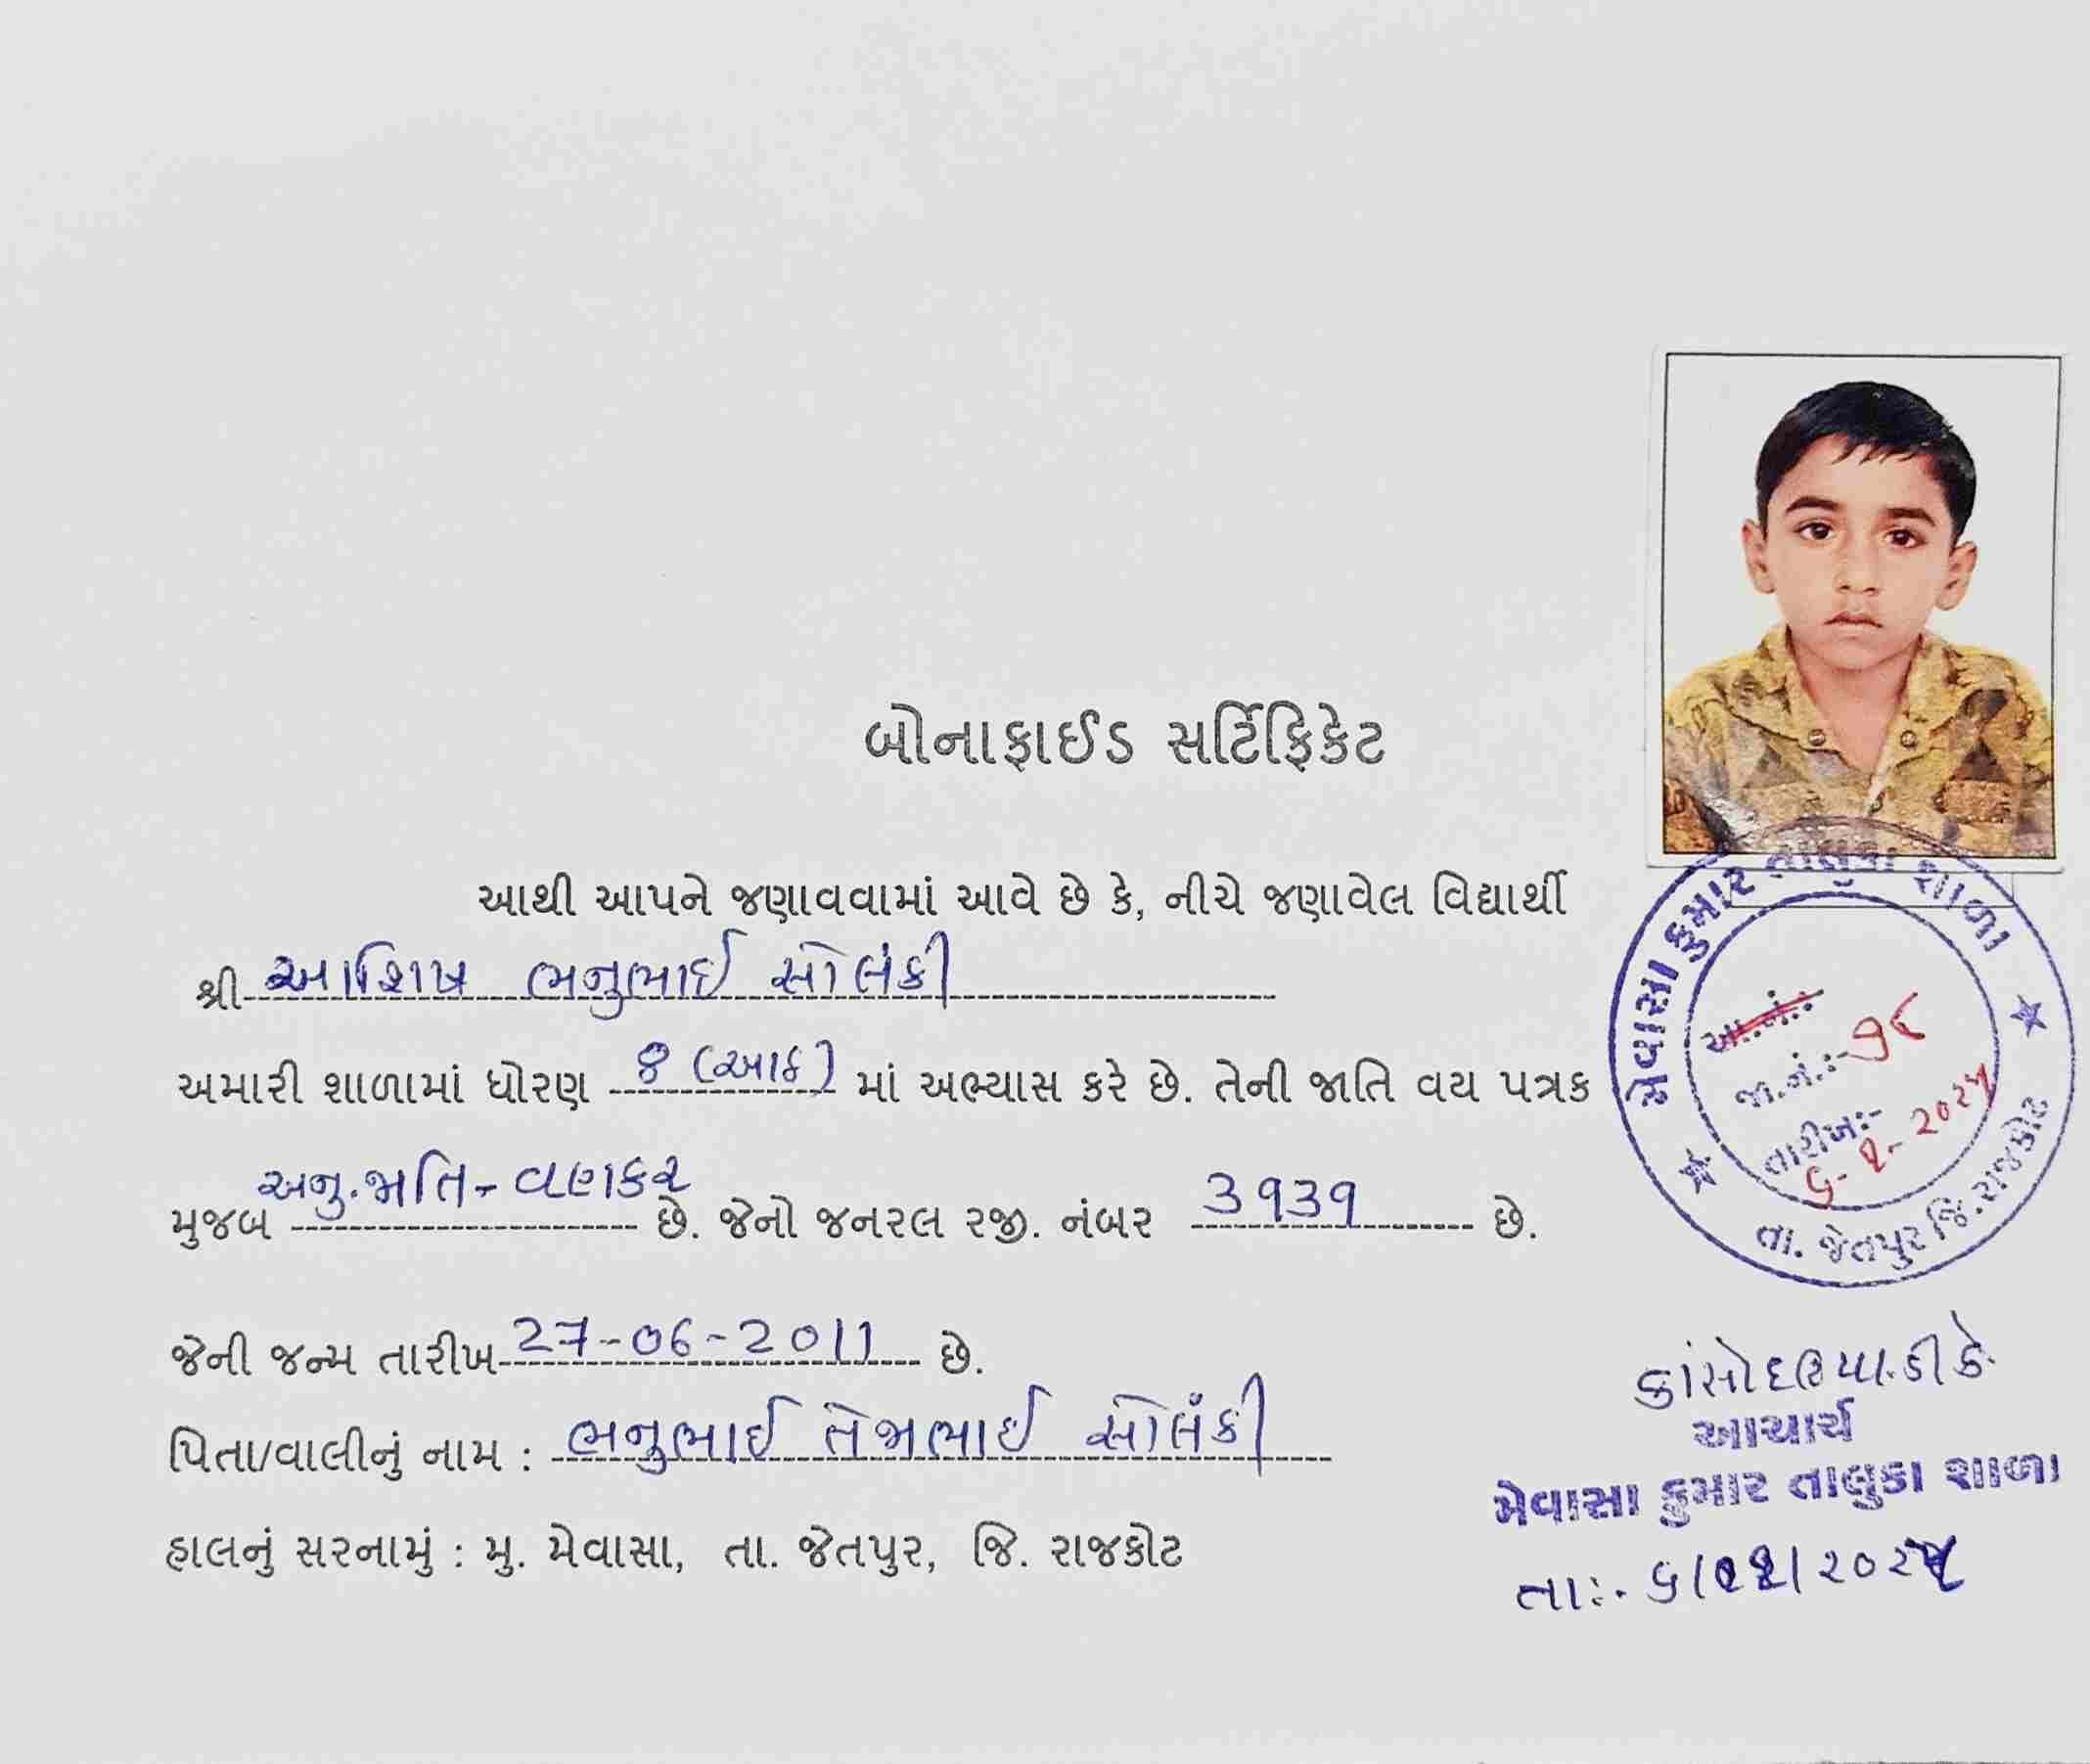 બોનાફાઈડ સર્ટિફિકેટ
આથી આપને જણાવવામાં આવે છે કે, નીચે જણાવેલ વિદ્યાર્થી
શ્રી આશિષ ભનુભાઈ સોલંકી
અમારી શાળામાં ધોરણ 8 (આઠ) માં અભ્યાસ કરે છે. તેની જાતિ વય પત્રક
મુજબ અનુ.જાતિ - વણકર છે. જેનો જનરલ રજી. નંબર ૩૧૩૧ છે.
જેની જન્મ તારીખ 27-06-2011 છે.
પિતા/વાલીનું નામ : ભનુભાઈ તેજાભાઈ સોલંકી
હાલનું સરનામું : મુ. મેવાસા, તા. જેતપુર, જિ. રાજકોટ
મેવાસા કુમાર તાલુકા શાળા
આ.નં.:
જા.નં.:- ૭૮
તારીખ:-
૬-૨-૨૦૨૫
તા. જેતપુર જિ. રાજકોટ
આચાર્ય
મેવાસા કુમાર તાલુકા શાળા
તા:-